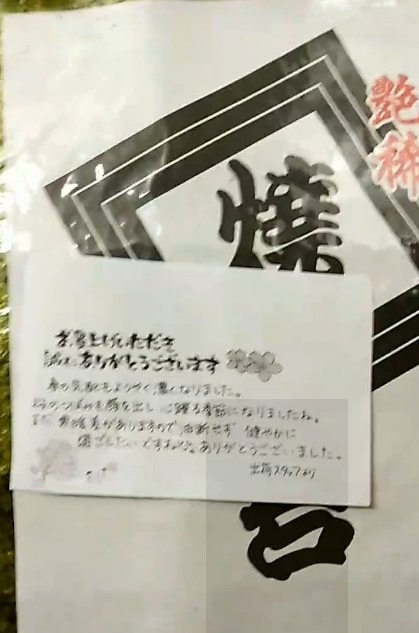 艶
稀
焼
お買上げいただき
誠にありがとうございます
春の気配もようやく濃くなりました。
桜のつぼみも顔を出し 心躍る季節になりましたね。
まだ 寒暖差がありますので 油断せず 健やかに
過ごしたいですね。ありがとうございました。
出荷スタッフより